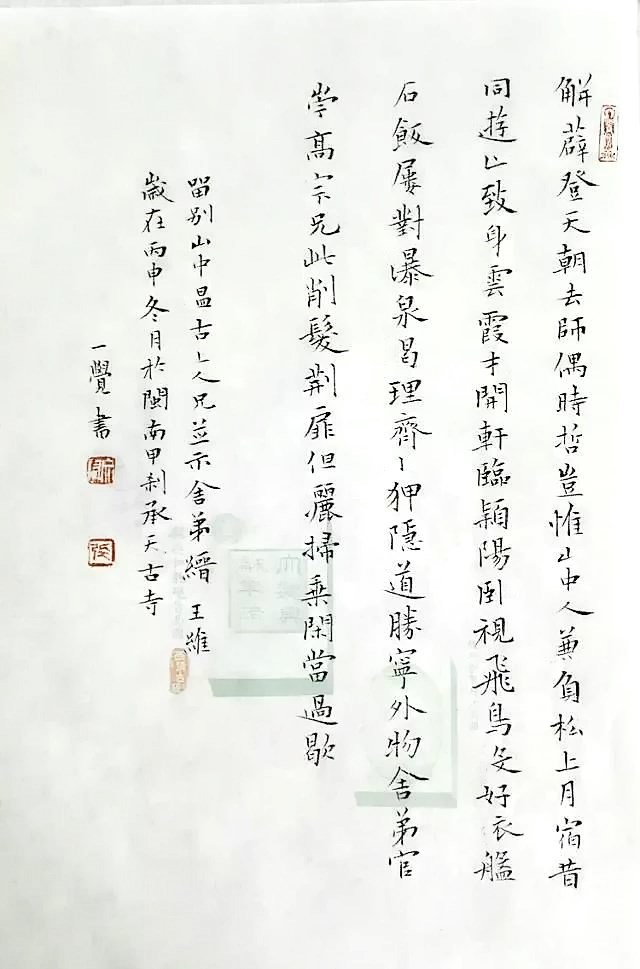 解薜登天朝去師偶時哲豈惟山中人兼負松上月宿昔
同遊止致身雲霞才開軒臨穎陽卧視飛鳥殳好衣艦
石飯屢對暴泉曷理齊狎隱道勝寧外物舍弟官
崇高宗兄此削髮荆扉但麗掃乘閑當過歇
留别山中昷古上人兄並示舍弟縉 王維
歲在丙申冬月於閩南甲刹承天古寺
一覺書